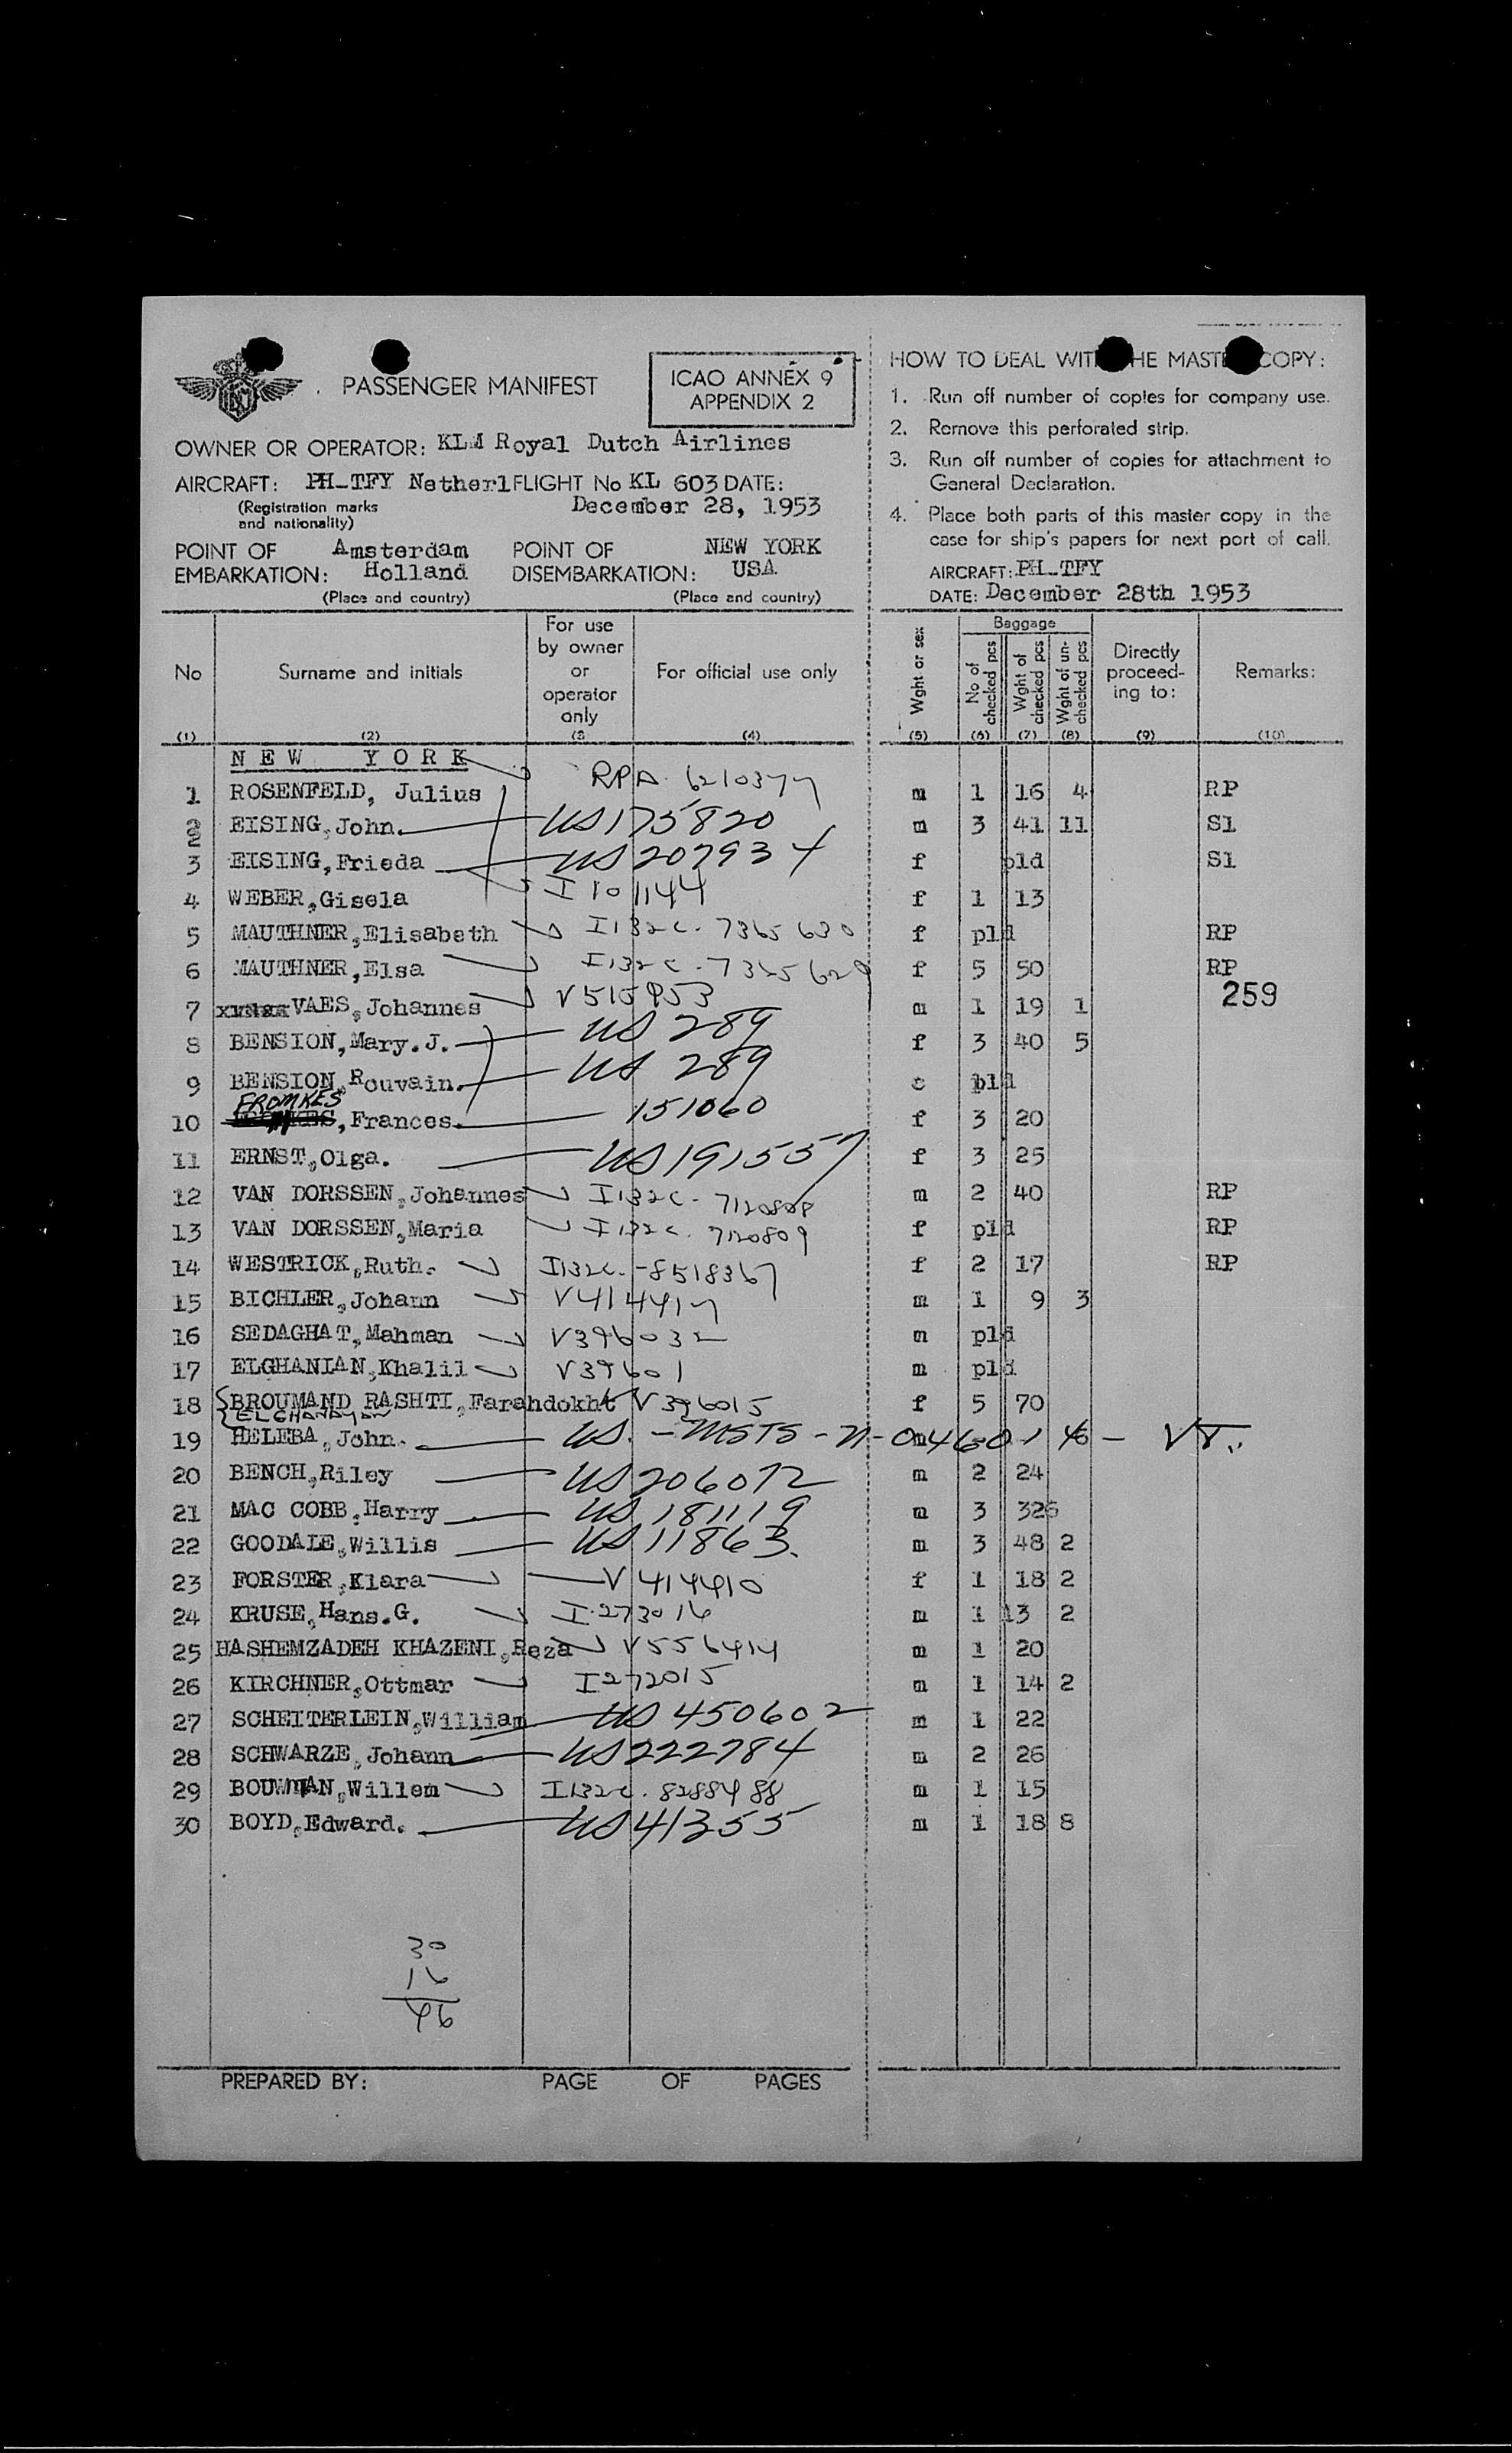 PASSENGER MANIFEST
ICAO ANNEX 9
APPENDIX 2
OWNER OR OPERATOR: KLM Royal Dutch Airlines
AIRCRAFT: PH-TFY Netherl FLIGHT No KL 603 DATE:
(Registration marks and nationality) December 28, 1953
POINT OF EMBARKATION: Amsterdam Holland
(Place and country)
POINT OF DISEMBARKATION: NEW YORK USA
(Place and country)
HOW TO DEAL WITH THE MASTER COPY:
1. Run off number of copies for company use.
2. Remove this perforated strip.
3. Run off number of copies for attachment to
General Declaration.
4. Place both parts of this master copy in the
case for ship's papers for next port of call.
AIRCRAFT: PH-TFY
DATE: December 28th 1953
No Surname and initials For use by owner or operator only For official use only Wght or sex Baggage No of checked pcs Wght of checked pcs Wght of un-checked pcs Directly proceed-ing to: Remarks:
(1) (2) (3 (4) (5) (6) (7) (8) (9) (10)
NEW YORK
1 ROSENFELD, Julius RPA. 6210377 m 1 16 4 RP
2 EISING, John. US 175820 m 3 41 11 Sl
3 EISING, Frieda US 207934 f pld Sl
4 WEBER, Gisela I 101144 f 1 13
5 MAUTHNER, Elisabeth I132C. 7365630 f pld RP
6 MAUTHNER, Elsa I132C. 7365629 f 5 50 RP
259
7 VAES, Johannes V515953 m 1 19 1
8 BENSION, Mary.J. US 289 f 3 40 5
9 BENSION, Rouvain. US 289 c pld
FROMKES
10 , Frances. 151060 f 3 20
11 ERNST, Olga. US 191557 f 3 25
12 VAN DORSSEN, Johannes I132C. 7120808 m 2 40 RP
13 VAN DORSSEN, Maria I132C. 7120809 f pld RP
14 WESTRICK, Ruth. I132C. -8518367 f 2 17 RP
15 BICHLER, Johann V414417 m 1 9 3
16 SEDAGHAT, Mahman V396032 m pld
17 ELGHANIAN, Khalil V39601 m pld
18 BROUMAND RASHTI, Farahdokht V396015 f 5 70
ELGHANAYAN
19 HELEBA, John. US. - MSTS - - VT.
20 BENCH, Riley US 206072 m 2 24
21 MAC COBB, Harry US 181119 m 3 326
22 GOODALE, Willis US 11863. m 3 48 2
23 FORSTER, Klara V 414410 f 1 18 2
24 KRUSE, Hans.G. I.273016 m 1 13 2
25 HASHEMZADEH KHAZENI, Reza V556414 m 1 20
26 KIRCHNER, Ottmar I272015 m 1 14 2
27 SCHEITERLEIN, William US 450602 m 1 22
28 SCHWARZE, Johann US 222784 m 2 26
29 BOUWMAN, Willem I132C. 8288488 m 1 15
30 BOYD, Edward. US 41355 m 1 18 8
30
16
46
PREPARED BY: PAGE OF PAGES